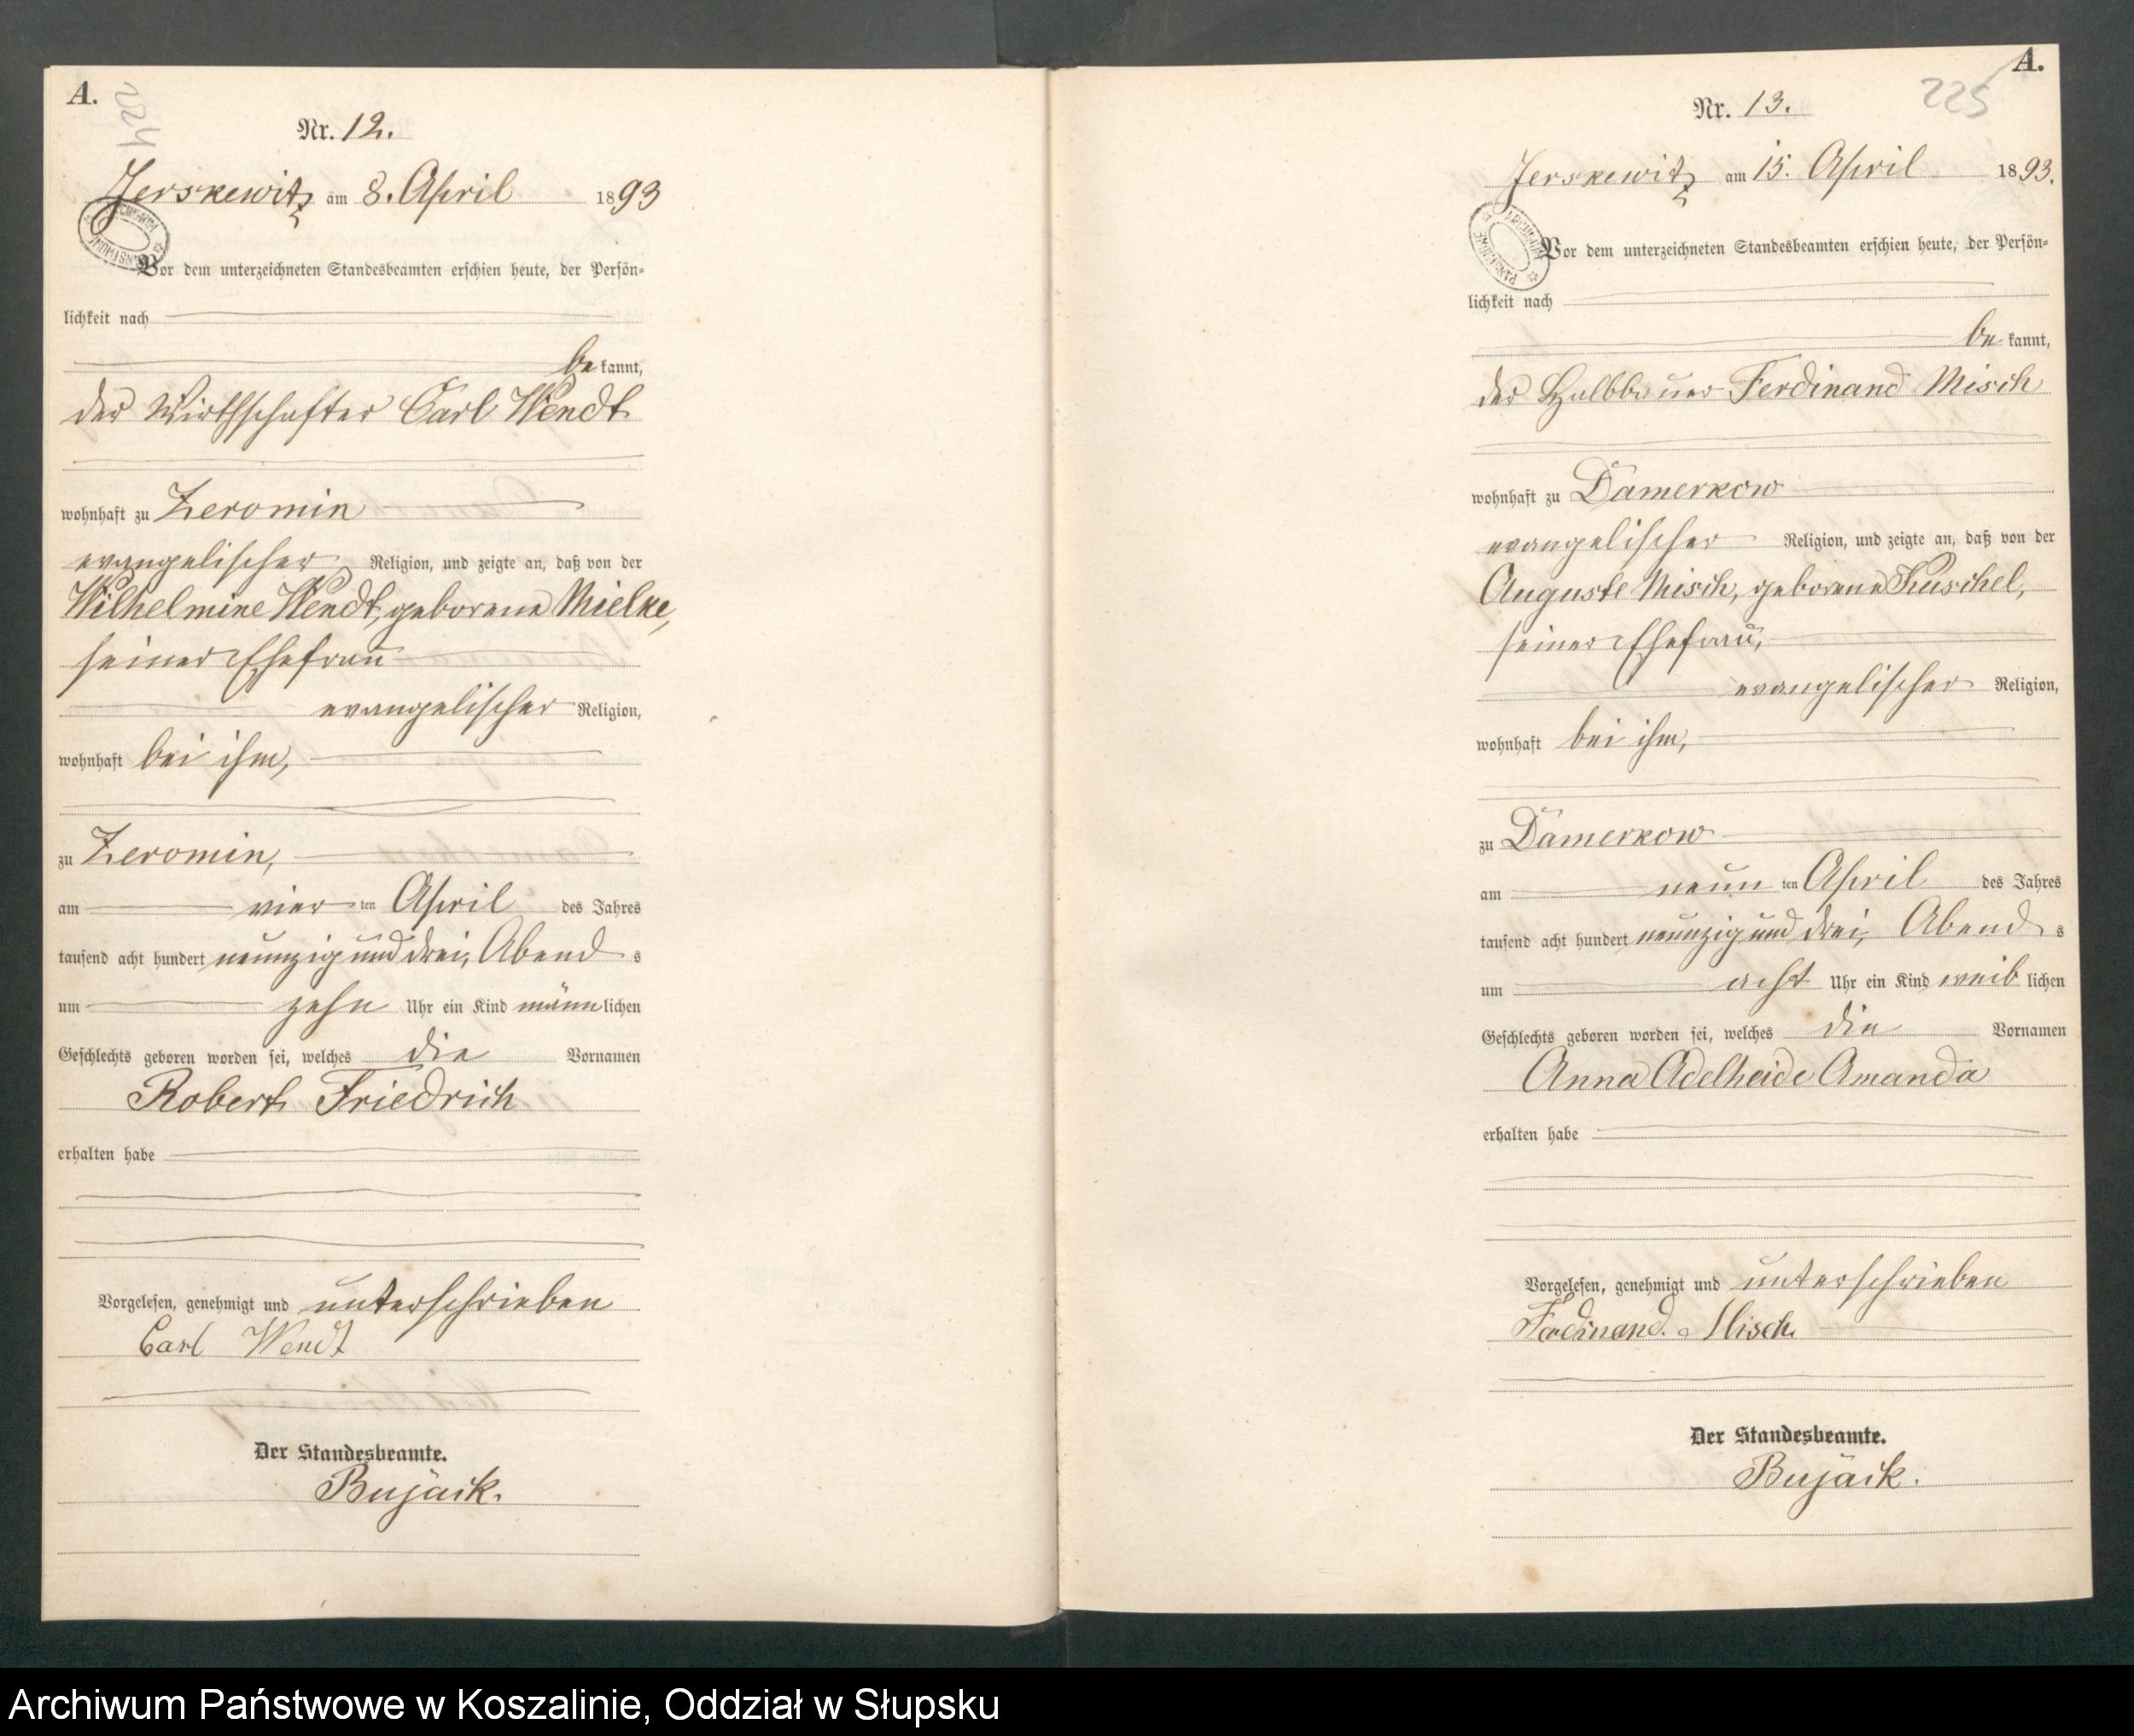 A.
224
Nr. 12.
Jerskewitz am 8. April 1893
Vor dem unterzeichneten Standesbeamten erschien heute, der Persön-
lichkeit nach
be kannt,
der Wirthschafter Carl Wendt
wohnhaft zu Zeromin
evangelischer Religion, und zeigte an, daß von der
Wilhelmine Wendt, geborene Mielke,
seiner Ehefrau
evangelischer Religion,
wohnhaft bei ihm,
zu Zeromin,
am vier ten April des Jahres
tausend acht hundert neunzig und drei, Abend s
um zehn Uhr ein Kind männlichen
Geschlechts geboren worden sei, welches die Vornamen
Robert Friedrich
erhalten habe
Vorgelesen, genehmigt und unterschrieben
Carl Wendt
Der Standesbeamte.
Bujack.
A.
225
Nr. 13.
Jerskewitz am 15. April 1893.
Vor dem unterzeichneten Standesbeamten erschien heute, der Persön-
lichkeit nach
be kannt,
der Halbbauer Ferdinand Misch
wohnhaft zu Damerkow
evangelischer Religion, und zeigte an, daß von der
Auguste Misch, geborene Kuschel,
seiner Ehefrau,
evangelischer Religion,
wohnhaft bei ihm,
zu Damerkow
am neun ten April des Jahres
tausend acht hundert neunzig und drei, Abend s
um acht Uhr ein Kind weib lichen
Geschlechts geboren worden sei, welches die Vornamen
Anna Adelheide Amanda
erhalten habe
Vorgelesen, genehmigt und unterschrieben
Ferdinand. Misch
Der Standesbeamte.
Bujack.
Archiwum Państwowe w Koszalinie, Oddział w Słupsku